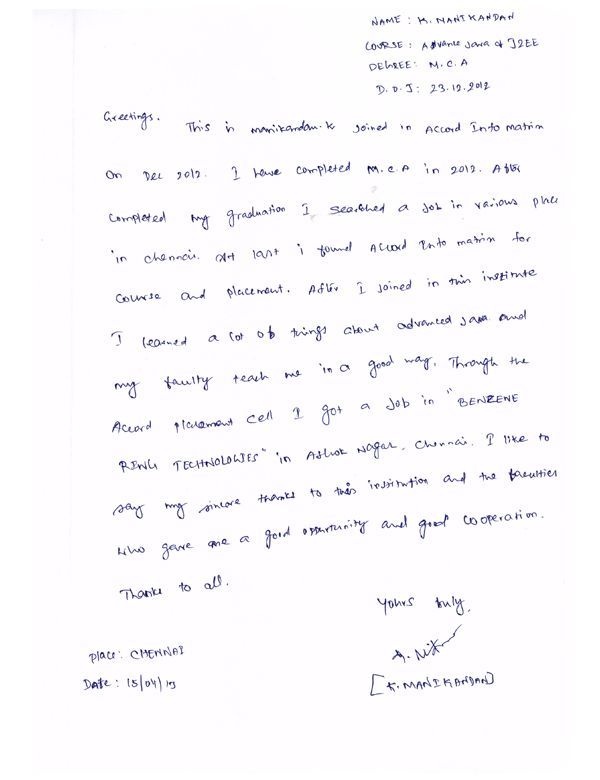 NAME : K. MANIKANDAN
COURSE : Advance Java & J2EE
DEGREE : M.C.A
D.O.J : 23.12.2012
Greetings.
This is manikandan.k joined in Accord Info matrix
On Dec 2012. I have completed M.C.A in 2012. After
completed my graduation I searched a job in various place
in chennai. At last i found Accord Info matrix for
course and placement. After I joined in this institute
I learned a lot of things about advanced Java and
my faulty teach me in a good way. Through the
Accord placement cell I got a job in "BENZENE
RING TECHNOLOGIES" in Ashok Nagar, Chennai. I like to
say my sincere thanks to this institution and the faculties
who gave me a good opportunity and good cooperation.
Thanks to all.
Yours truly,
[K. MANIKANDAN]
Place : CHENNAI
Date : 15/04/13